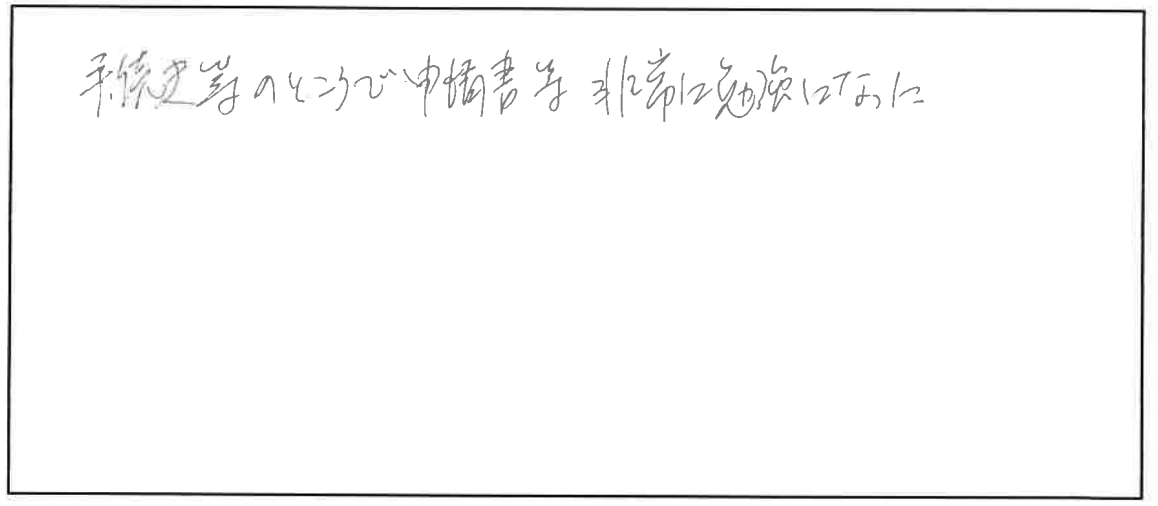 手続き等のところで申請書等 非常に勉強になった